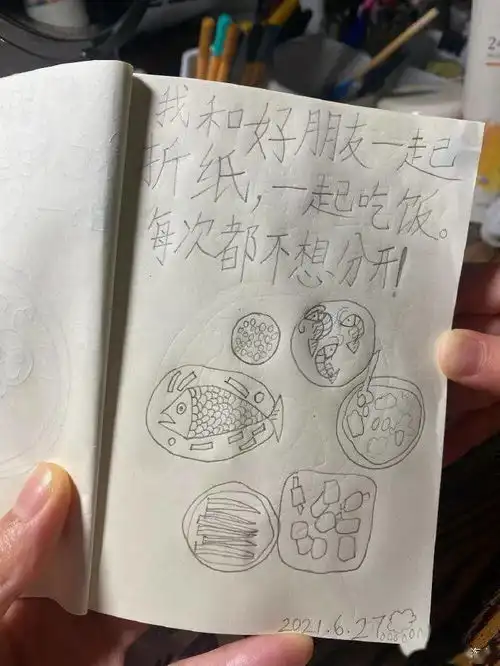 我和好朋友一起
折纸,一起吃饭。
每次都不想分开!
2021.6.27